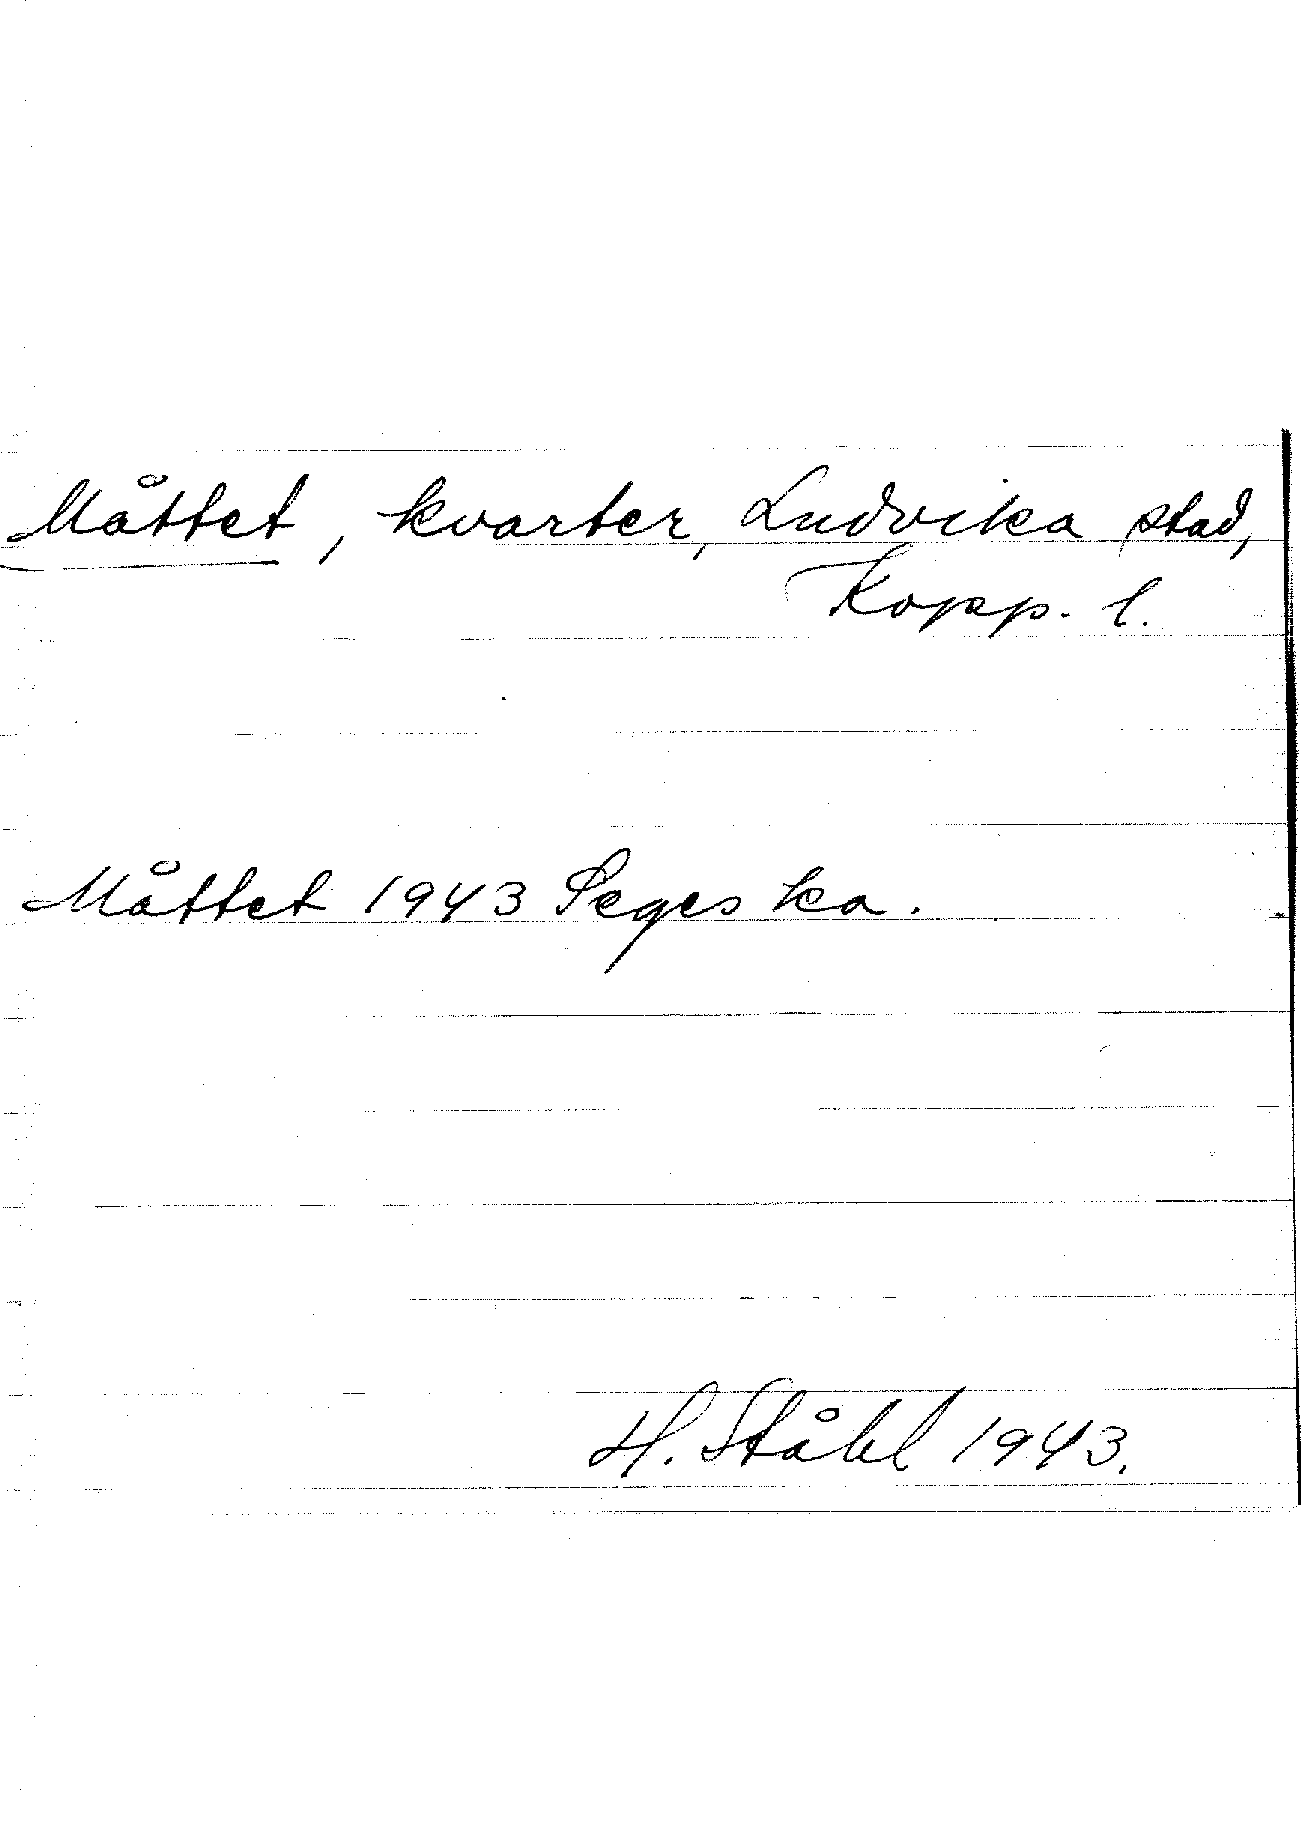 Måttet, kvarter, Ludvika stad,
Kopp. l.
Måttet 1943 Segeska.
H. Ståhl 1943.